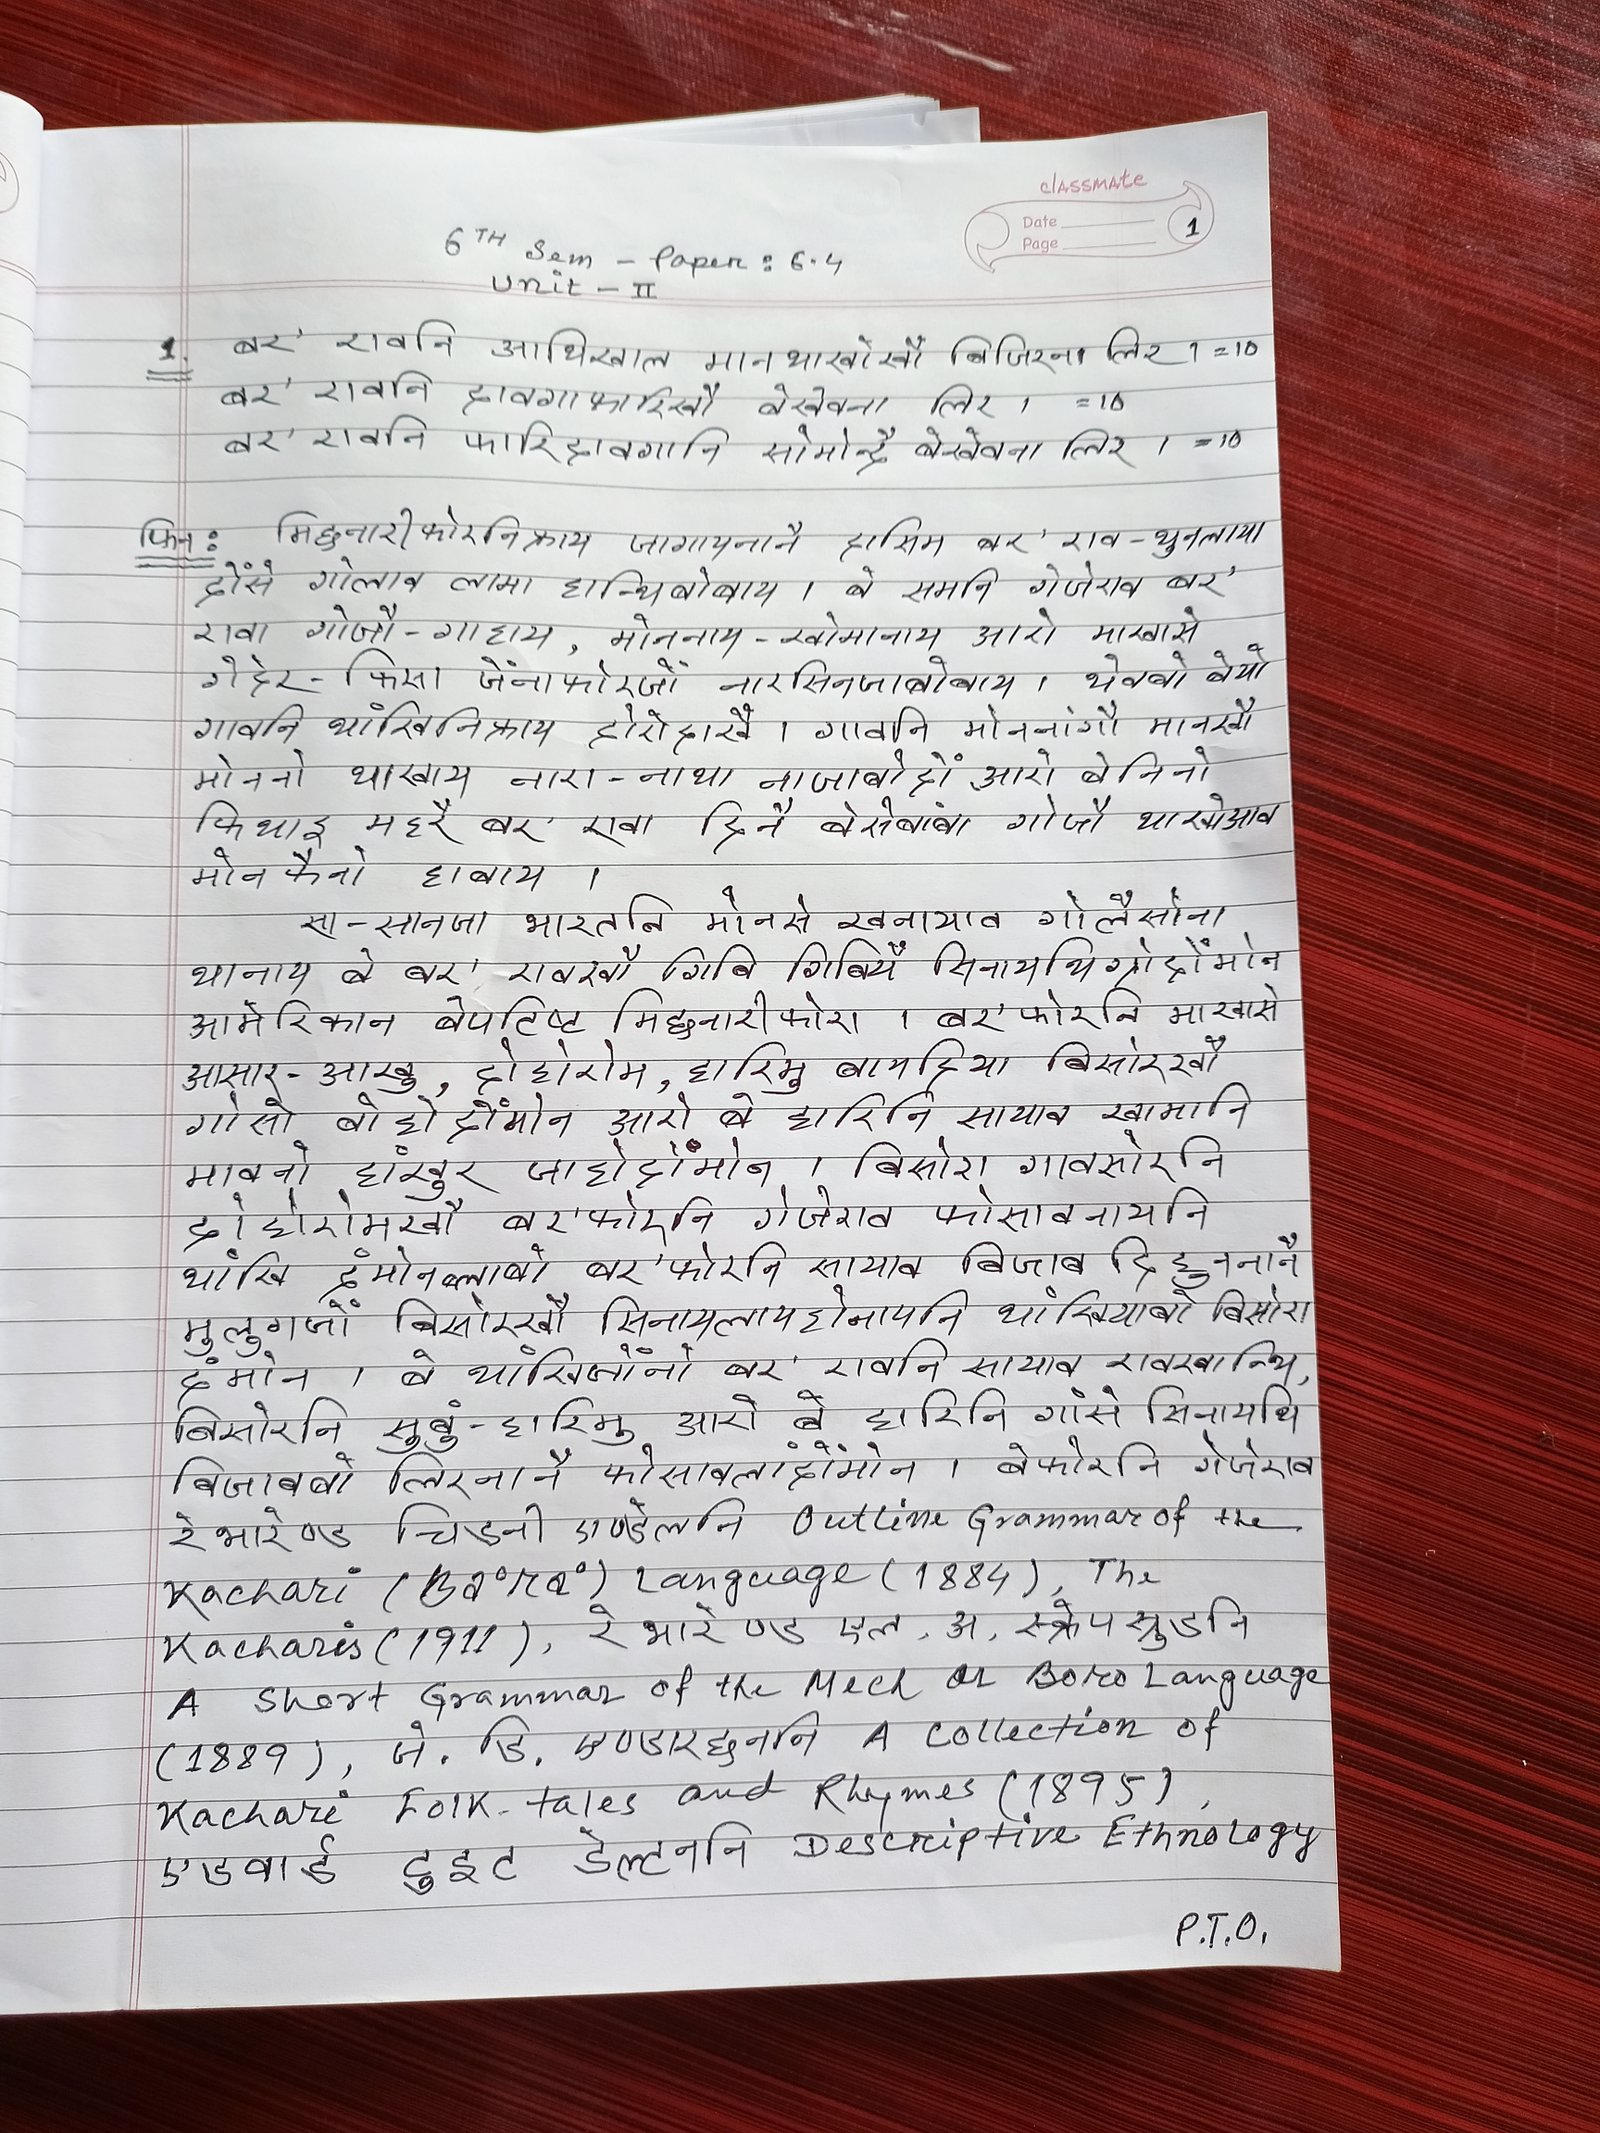 classmate
Date
Page
1
6TH Sem - Paper: 6.4
Unit - II
1. बर' रावनि आथिखाल मानथाखोखौ बिजिरना लिर । =10
बर' रावनि दावगाफारिखौ बेखेवना लिर । =10
बर' रावनि फारिदावगानि सोमोन्दै बेखेवना लिर । =10
फिन: मिछनारीफोरनिफ्राय जागायनानै दासिम बर' राव-थुनलाया
दोंसे गोलाव लामा हान्थिबोबाय । बे समनि गेजेराव बर'
रावा गोजौ-गाहाय, मोननाय-खोमानाय आरो माखासे
गेदेर-फिसा जेंनाफोरजों नारसिनजाबोबाय । थेवबो बेयो
गावनि थांखिनिफ्राय दोरोदाखै । गावनि मोननांगौ मानखौ
मोननो थाखाय नारा-नाथा नाजाबोदों आरो बेनिनो
फिथाइ महरै बर' रावा दिनै बेसेबांबा गोजौ थाखोआव
मोनफैनो हाबाय ।
सा-सानजा भारतनि मोनसे खनायाव गोलैसोना
थानाय बे बर' रावखौ गिबि गिबियै सिनायथि होदोंमोन
आमेरिकान बेपटिष्ट मिछनारीफोरा । बर'फोरनि माखासे
आसार-आखु, दोहोरोम, हारिमु बायदिया बिसोरखौ
गोसो बोहोदोंमोन आरो बे हारिनि सायाव खामानि
मावनो हांखुर जाहोदोंमोन । बिसोरा गावसोरनि
दोहोरोमखौ बर'फोरनि गेजेराव फोसावनायनि
थांखि दंमोनब्लाबो बर'फोरनि सायाव बिजाब दिहुननानै
मुलुगजों बिसोरखौ सिनायलायहोनायनि थांखियाबो बिसोरा
दंमोन । बे थांखिजोंनो बर' रावनि सायाव रावखान्थि,
बिसोरनि सुबुं-हारिमु आरो बे हारिनि गांसे सिनायथि
बिजाबबो लिरनानै फोसावलांदोंमोन । बेफोरनि गेजेराव
रेभारेण्ड चिडनी एण्डेलनि Outline Grammar of the
Kachari (Ba°ra°) Language (1884), The
Kacharis (1911), रेभारेण्ड एल. अ. स्क्रेपस्रुडनि
A Short Grammar of the Mech or Boro Language
(1889), जे. डि. एण्डारछननि A Collection of
Kachari Folk-tales and Rhymes (1895),
एडवार्ड टुइट डेल्टननि Descriptive Ethnology
P.T.O.